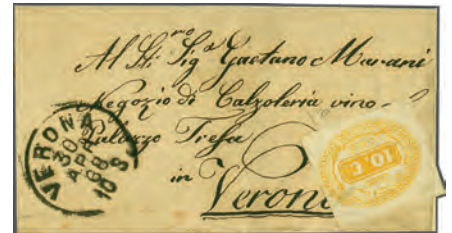 Al St.mo Sig.r Gaetano Marani
Negozio di Calzoleria vino
Palazzo Trefa
in Verona
VERONA
30
APR
68
10 S
10 C.